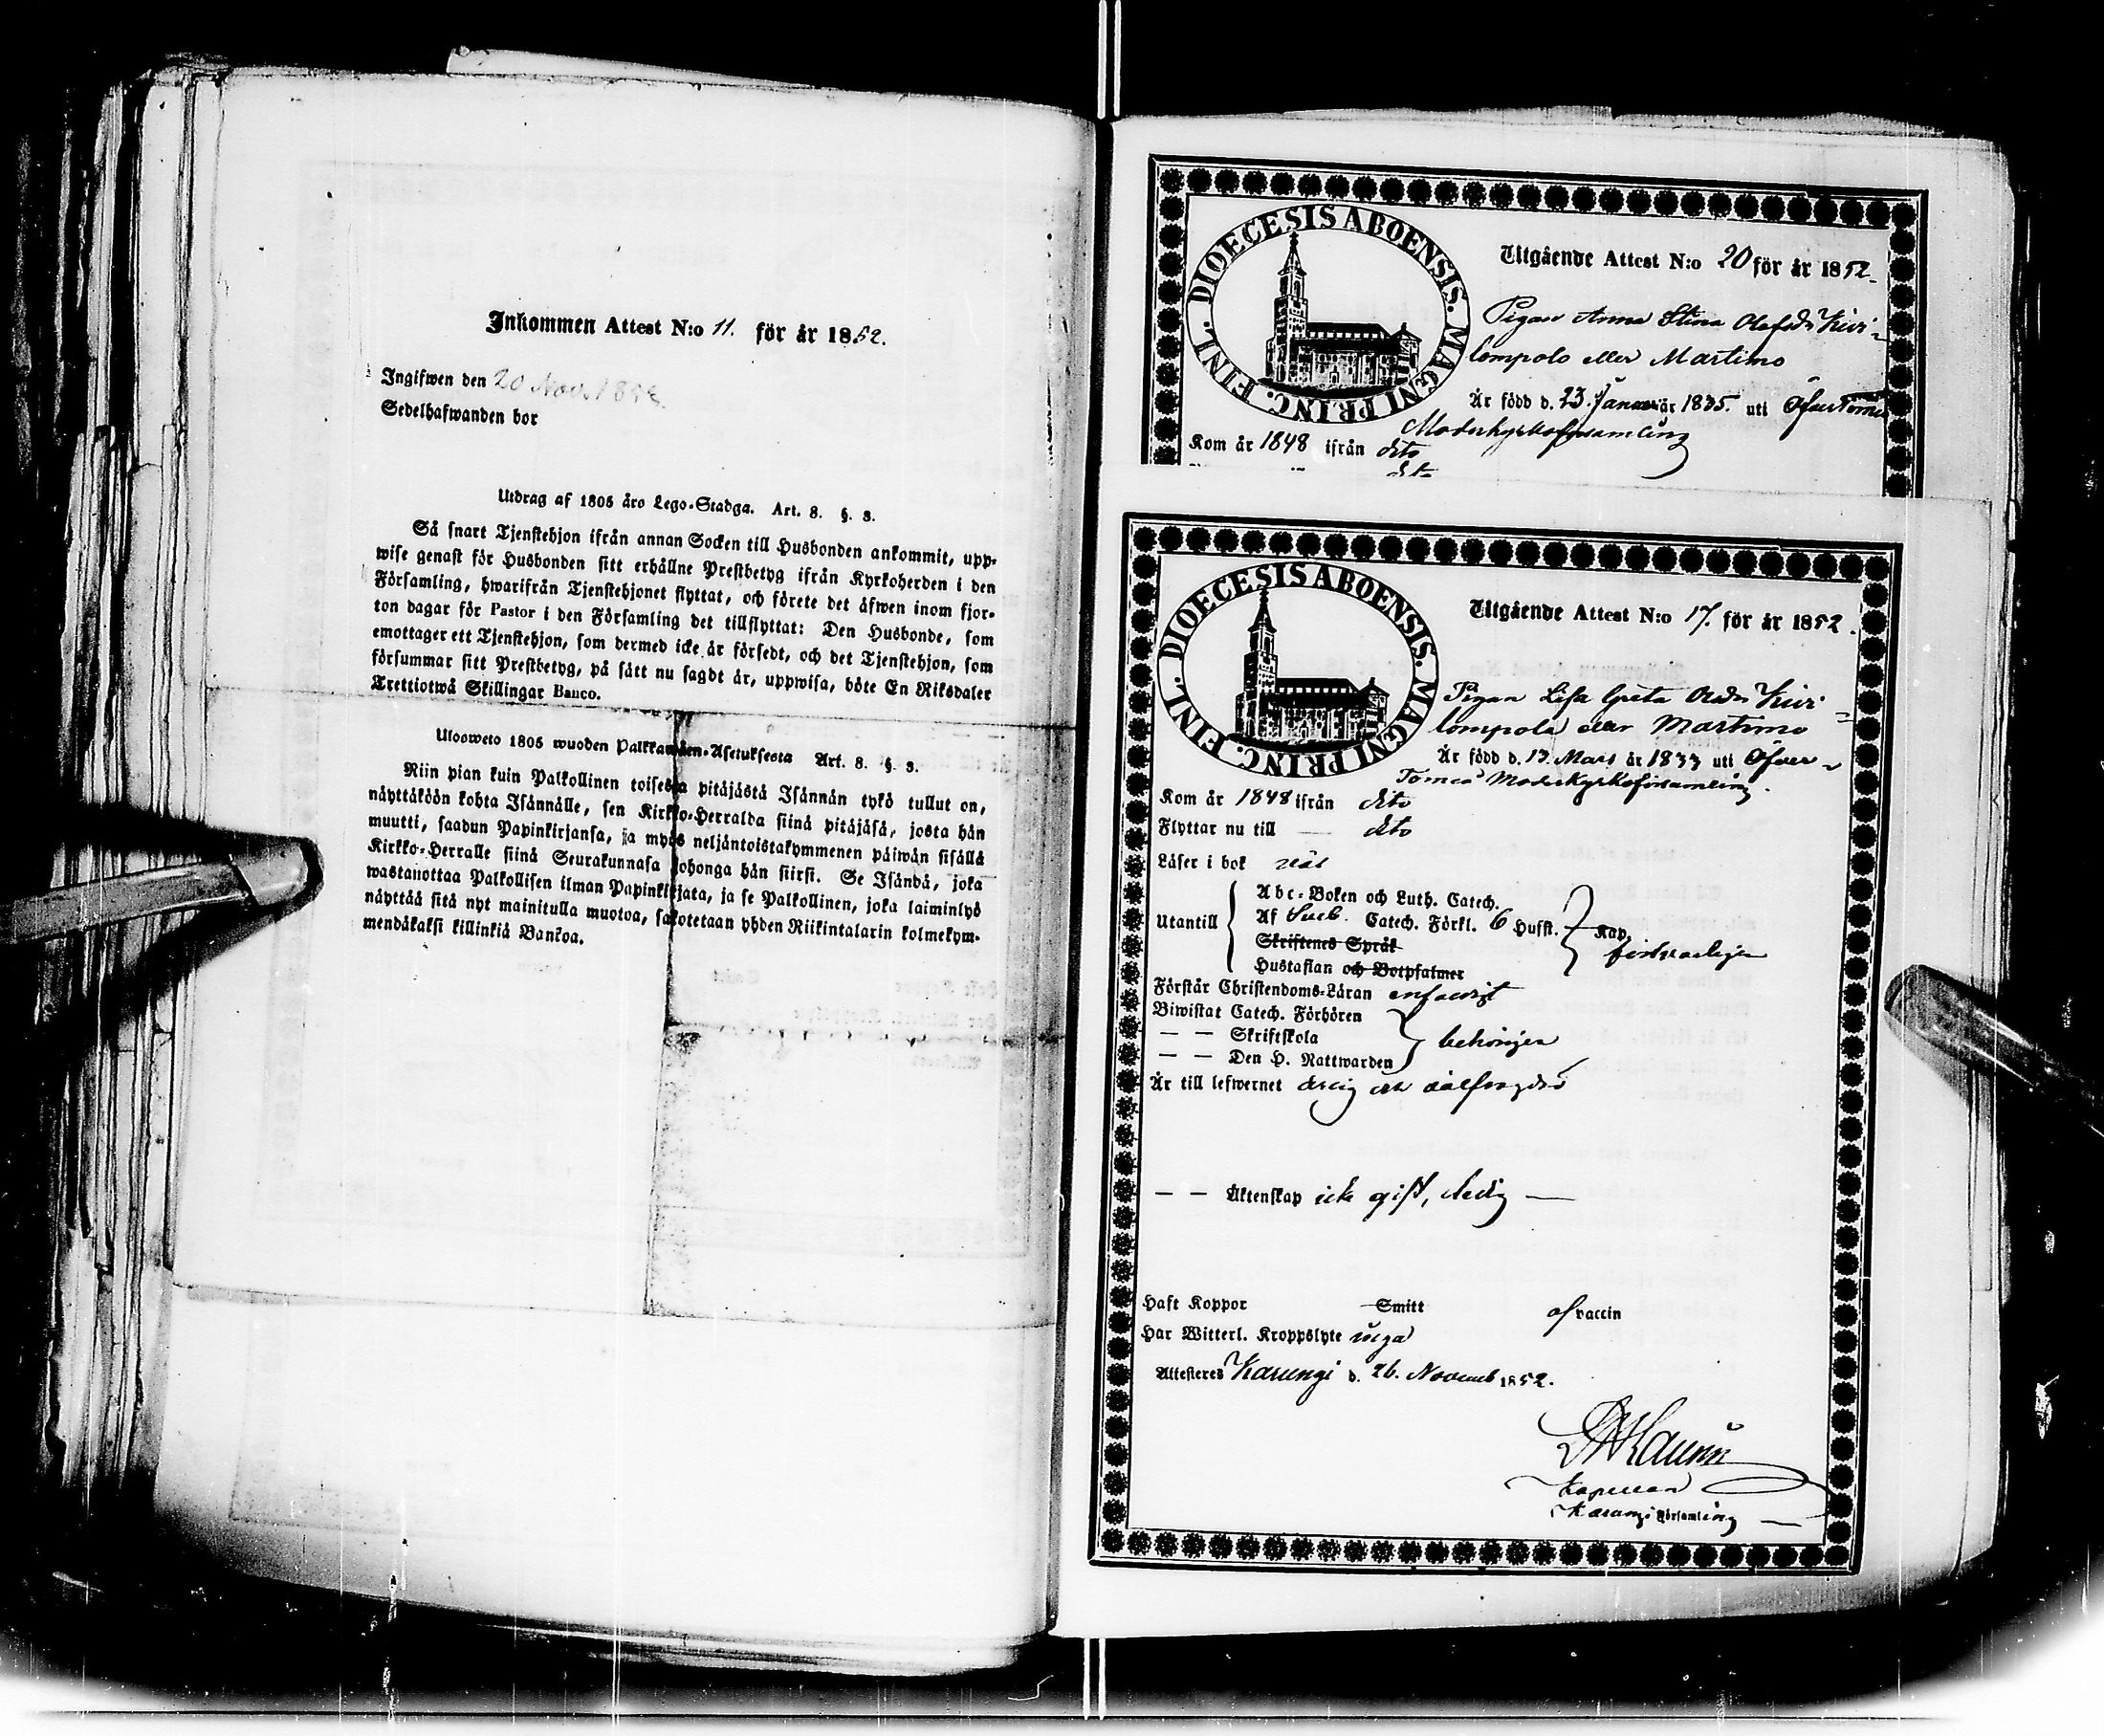 Inkommen Attest N:o 11. för år 1852.
Ingifwen den 20 Nov. 185
Sedelhafwanden bor
Utdrag af 1805 års Lego-Stadga. Art. 8. §. 3.
Så snart Tjenstehjon ifrån annan Socken till Husbonden ankommit, upp-
wise genast för Husbonden sitt erhållne Prestbetyg ifrån Kyrkoherden i den
Församling, hwarifrån Tjenstehjonet flyttat, och förete det äfwen inom fjor-
ton dagar för Pastor i den Församling det tillflyttat: Den Husbonde, som
emottager ett Tjenstehjon, som dermed icke är försedt, och det Tjenstehjon, som
försummar sitt Prestbetyg, på sätt nu sagdt är, uppwisa, böte En Riksdaler
Trettiotwå Skillingar Banco.
Ulosweto 1805 wuoden Palkkawäen-Asetuksesta Art. 8. §. 3.
Niin pian kuin Palkollinen toisesta pitäjästä Isännän tykö tullut on,
näyttäköön kohta Isännälle, sen Kirkko-Herralda siinä pitäjäsä, josta hän
muutti, saadun Papinkirjansa, ja myös neljäntoistakymmenen päiwän sisällä
Kirkko-Herralle siinä Seurakunnasa johonga hän siirsi. Se Isändä, joka
wastanottaa Palkollisen ilman Papinkirjata, ja se Palkollinen, joka laiminlyö
näyttää sitä nyt mainitulla muotoa, sakotetaan yhden Riikintalarin kolmekym-
mendäkaksi killinkiä Bankoa.
DIOECESIS ABOENSIS. MAGNI PRINC. FINL.
Utgående Attest N:o 20 för år 1852.
Pigan Anna Stina Olofsdr Kivi-
lompolo eller Martimo
Är född d. 23. Januari år 1835. uti ÖfverTorneå
Moderkyrkoförsamling
Kom år 1848 ifrån dito
dito
DIOECESIS ABOENSIS. MAGNI PRINC. FINL.
Utgående Attest N:o 17. för år 1852.
Pigan Lisa Greta Kivi-
lompolo eller Martimo
Är född d. 13 Mars år 1833 uti Öfver-
Torneå Moderkyrkoförsamling.
Kom år 1848 ifrån dito
Flyttar nu till — dito
Läser i bok väl
Utantill
Abc-Boken och Luth. Catech.
Af Sveb. Catech. Förkl. 6 Hufst. Kap.
Skriftenes Språk
försvarligen
Hustaflan och Botpsalmer
Förstår Christendoms-Läran enfaldigt
Biwistat Catech. Förhören
— — Skriftskola
behörigen
— — Den H. Nattwarden
Är till lefwernet ärlig och välfrejdad
— — Äktenskap icke gift, ledig —
Haft Koppor Smitt af vaccin
Har Witterl. Kroppslyte inga
Attesteres Karungi d. 26. Novemb 1852.
Kapellan
Karungi Församling —